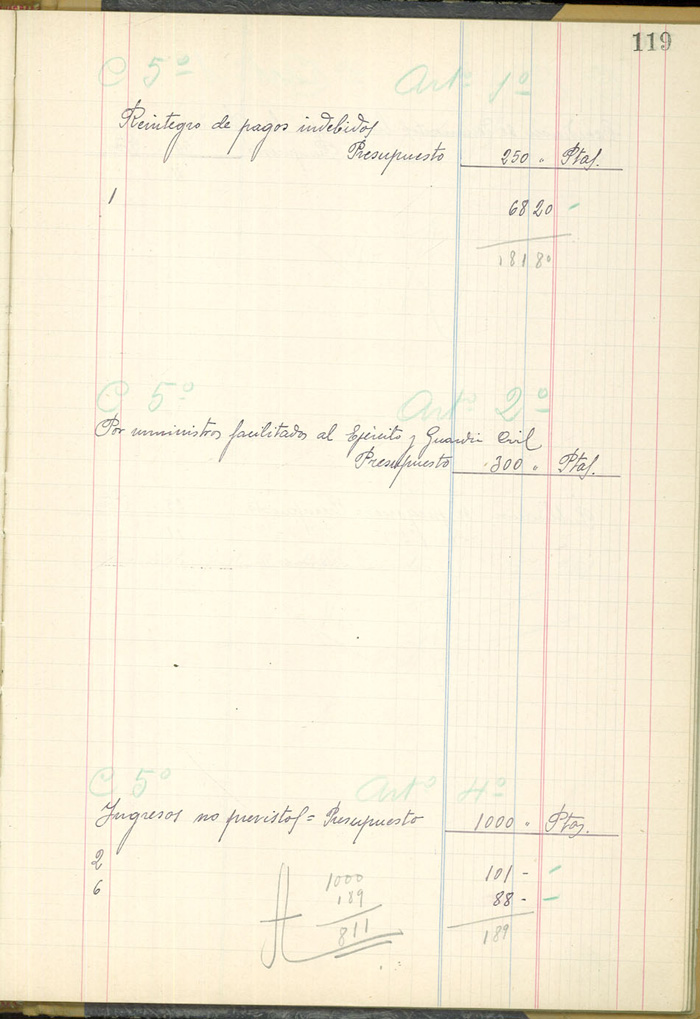 119
C 5º Artº 1º
Reintegro de pagos indebidos
Presupuesto 250 " Ptas.
1 68 20 -
181 80
C 5º Artº 2º
Por suministros facilitados al Ejército y Guardia Civil
Presupuesto 300 " Ptas.
C 5º Artº 4º
Ingresos no previstos = Presupuesto 1000 " Ptas.
2 101 - -
6 88 - -
1000
189 189
811